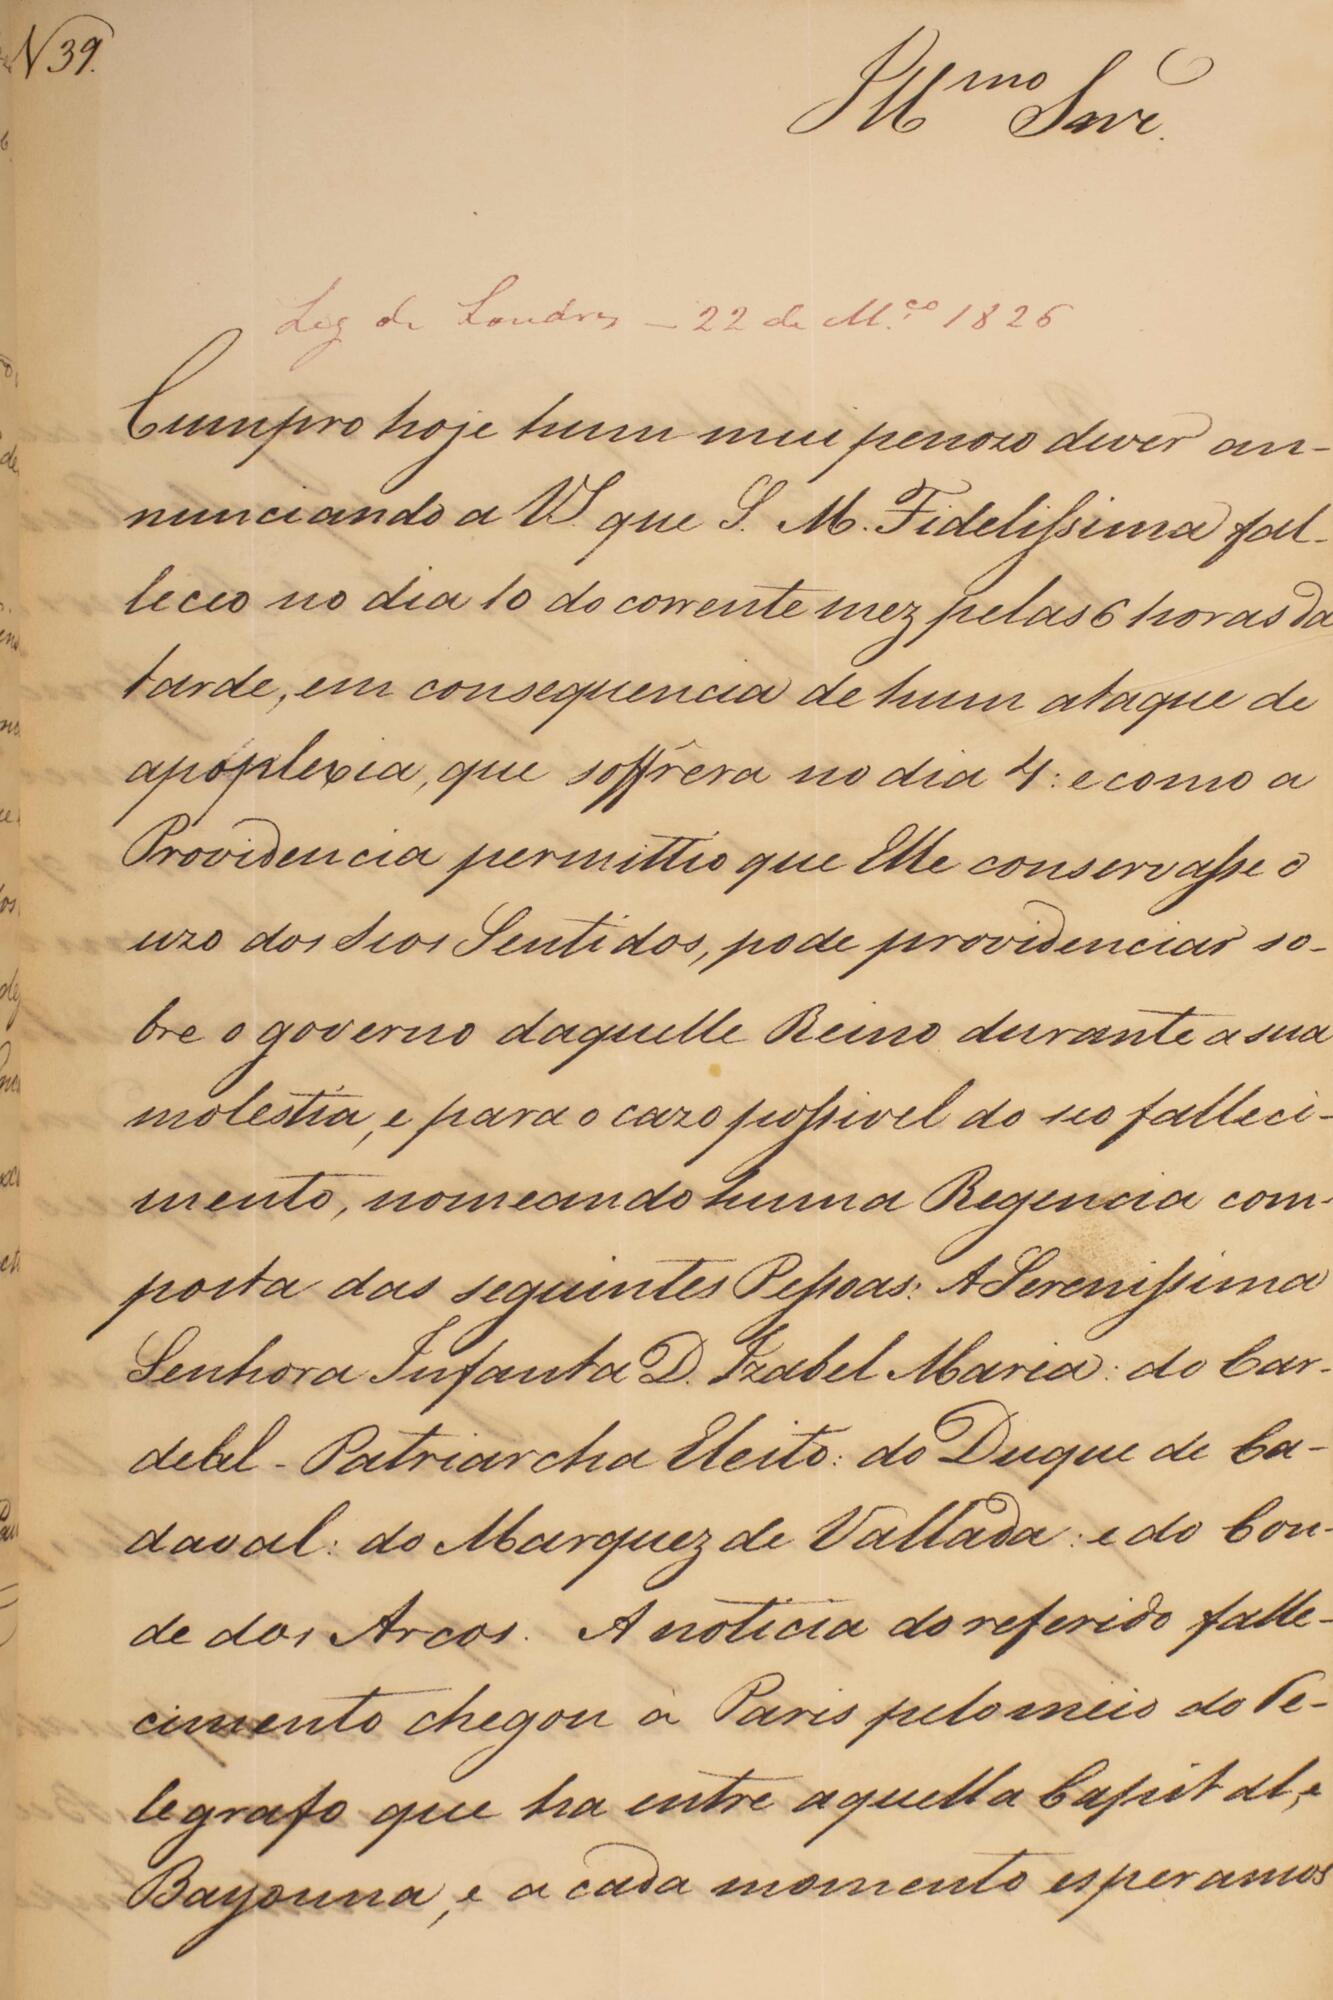 N 39.
Illmo Snr.
Leg de Londres — 22 de M.ço 1826
Cumpro hoje hum mui penozo dever an-
nunciando a VS. que S. M. Fidelissima fal-
leceo no dia 10 do corrente mez pelas 6 horas da
tarde, em consequencia de hum ataque de
apoplexia, que soffrêra no dia 4: e como a
Providencia permittio que Elle conservasse o
uzo dos seos Sentidos, pode providenciar so-
bre o governo daquelle Reino durante a sua
molestia, e para o cazo possivel do seo falleci-
mento, nomeando huma Regencia com-
posta das seguintes Pessoas: A Serenissima
Senhora Infanta D. Izabel Maria: do Car-
deal - Patriarcha Eleito: do Duque de Ca-
daval: do Marquez de Vallada: e do Con-
de dos Arcos. A noticia do referido falle-
cimento chegou à Paris pelo meio do Te-
legrafo que ha entre aquella Capital, e
Bayonna, e a cada momento esperamos